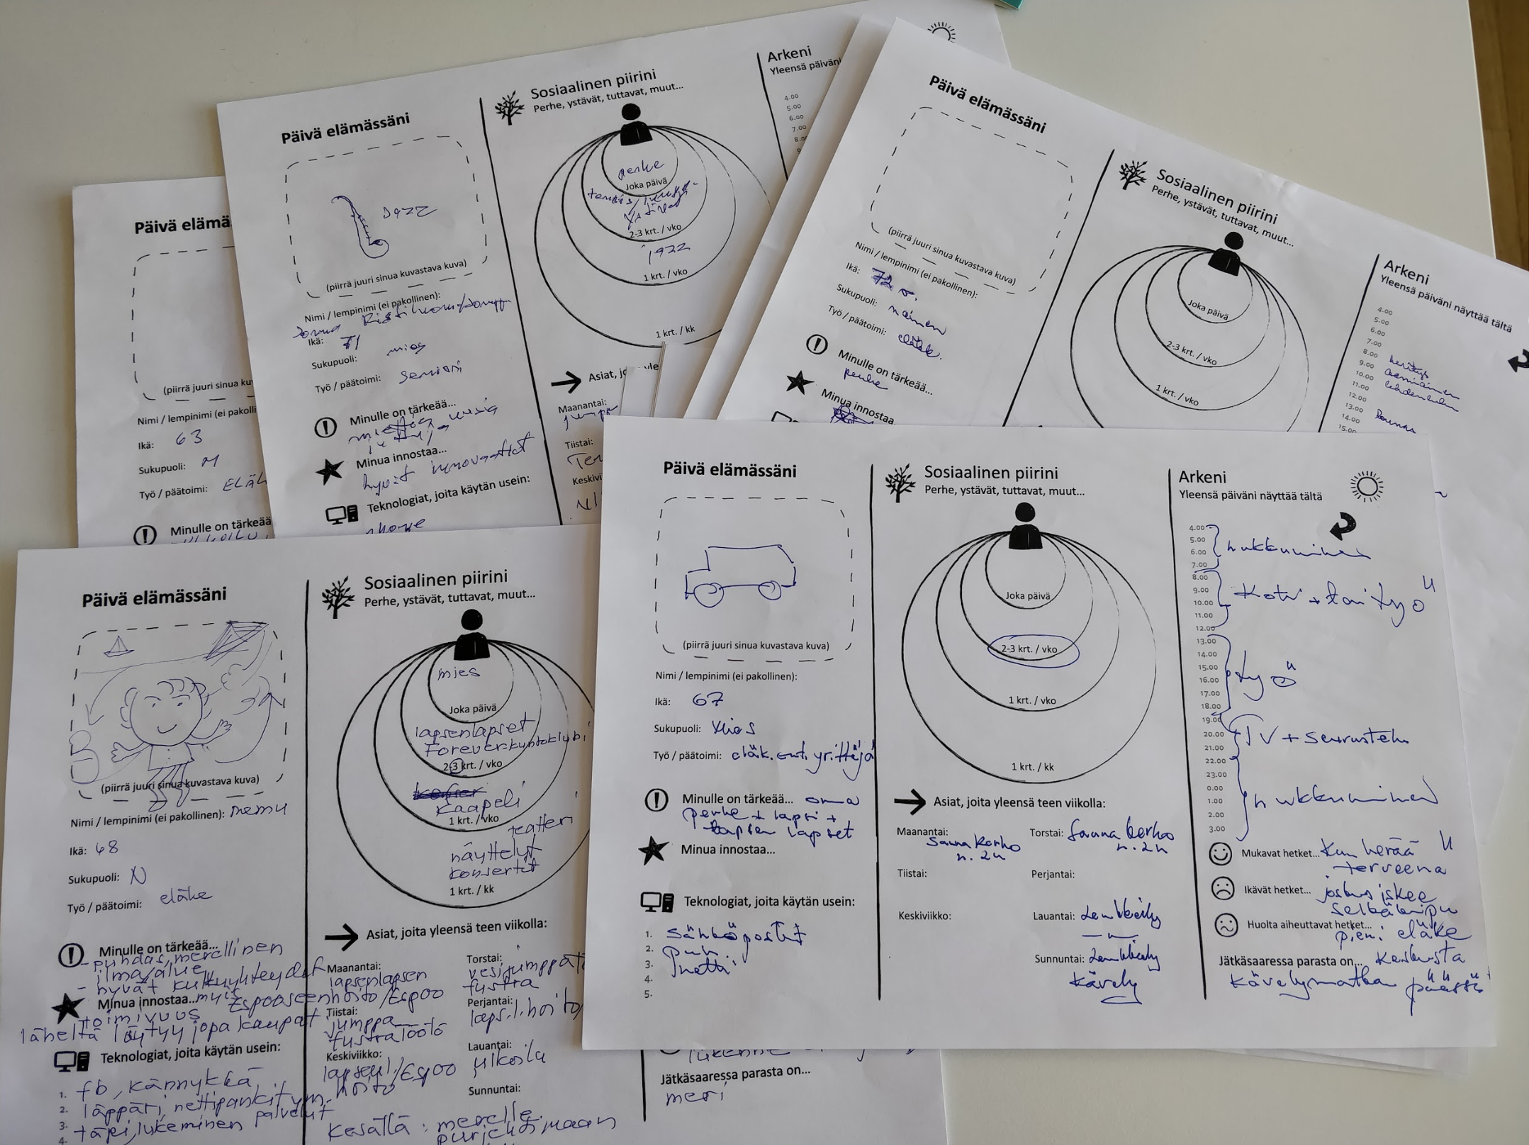 Päivä elämä
(piirrä juuri sinua ku
Nimi / lempinimi (ei pakolli
Ikä: 63
Sukupuoli: M
Työ / päätoimi: ELÄK
Minulle on tärkeää
Päivä elämässäni
JAZZ
(piirrä juuri sinua kuvastava kuva)
Nimi / lempinimi (ei pakollinen):
Ikä: 71
Sukupuoli: mies
Työ / päätoimi: seniori
Minulle on tärkeää...
Minua innostaa...
hyvät innovaatiot
Teknologiat, joita käytän usein:
Sosiaalinen piirini
Perhe, ystävät, tuttavat, muut...
perhe
Joka päivä
2-3 krt. / vko
1972
1 krt. / vko
1 krt. / kk
Asiat, jo
Maanantai:
Tiistai:
Keskivi
Arkeni
Yleensä päiväni
4.00
5.00
6.00
7.00
Päivä elämässäni
(piirrä juuri sinua kuvastava kuva)
Nimi / lempinimi (ei pakollinen):
Ikä: 72 v.
Sukupuoli: nainen
Työ / päätoimi: eläk.
Minulle on tärkeää...
perhe
Minua innostaa
Sosiaalinen piirini
Perhe, ystävät, tuttavat, muut...
Joka päivä
2-3 krt. / vko
1 krt. / vko
Arkeni
Yleensä päiväni näyttää tältä
4.00
5.00
6.00
7.00
8.00 herätys
9.00 aamiainen
10.00 lehdenluku
11.00
12.00
13.00 lounas
14.00
15.00
Päivä elämässäni
(piirrä juuri sinua kuvastava kuva)
Nimi / lempinimi (ei pakollinen): memu
Ikä: 68
Sukupuoli: N
Työ / päätoimi: eläke
Minulle on tärkeää...
- puhdas, merellinen
ilma/alue
- hyvät kulkuyhteydet
Minua innostaa... myös Espooseen
toimivuus
läheltä löytyy jopa kaupat
Teknologiat, joita käytän usein:
1. fb, kännykkä
2. läppäri, nettipankit ym.
palvelut
3. täpi, lukeminen
4.
Sosiaalinen piirini
Perhe, ystävät, tuttavat, muut...
mies
Joka päivä
lapsenlapset
Foreverkuntoklubi
2-3 krt. / vko
Kaapeli
1 krt. / vko
teatteri
näyttelyt
konsertit
1 krt. / kk
Asiat, joita yleensä teen viikolla:
Maanantai:
lapsenlapsen
hoito/Espoo
Tiistai:
jumppa
fustra Töölö
Keskiviikko:
lapsenl./Espoo
hoito
Torstai:
vesijumppa
fustra
Perjantai:
laps.l.hoito
Lauantai:
ulkoilu
Sunnuntai:
Kesällä: merelle
purjehtimaan
Jätkäsaaressa parasta on...
meri
Päivä elämässäni
(piirrä juuri sinua kuvastava kuva)
Nimi / lempinimi (ei pakollinen):
Ikä: 67
Sukupuoli: Mies
Työ / päätoimi: eläk. ent. yrittäjä
Minulle on tärkeää... oma
perhe + lapsi +
lapsen lapset
Minua innostaa...
Teknologiat, joita käytän usein:
1. sähköpostit
2. puh
3. netti
4.
5.
Sosiaalinen piirini
Perhe, ystävät, tuttavat, muut...
Joka päivä
2-3 krt. / vko
1 krt. / vko
1 krt. / kk
Asiat, joita yleensä teen viikolla:
Maanantai:
Sauna kerho
n. 2h
Tiistai:
Keskiviikko:
Torstai: Sauna kerho
n. 2h
Perjantai:
Lauantai: Lenkkeily
Sunnuntai: Lenkkeily
kävely
Arkeni
Yleensä päiväni näyttää tältä
4.00
5.00
6.00
7.00
nukkuminen
8.00
9.00
10.00
11.00
12.00
Koti + tori työ
13.00
14.00
15.00
16.00
17.00
18.00
työ
19.00
20.00
21.00
TV + seurustelu
22.00
23.00
0.00
1.00
2.00
3.00
nukkuminen
Mukavat hetket... Kun herää
terveenä
Ikävät hetket... joskus iskee
selkäkipu
Huolta aiheuttavat hetket...
pieni eläke
Jätkäsaaressa parasta on... keskusta
kävelymatkan päässä